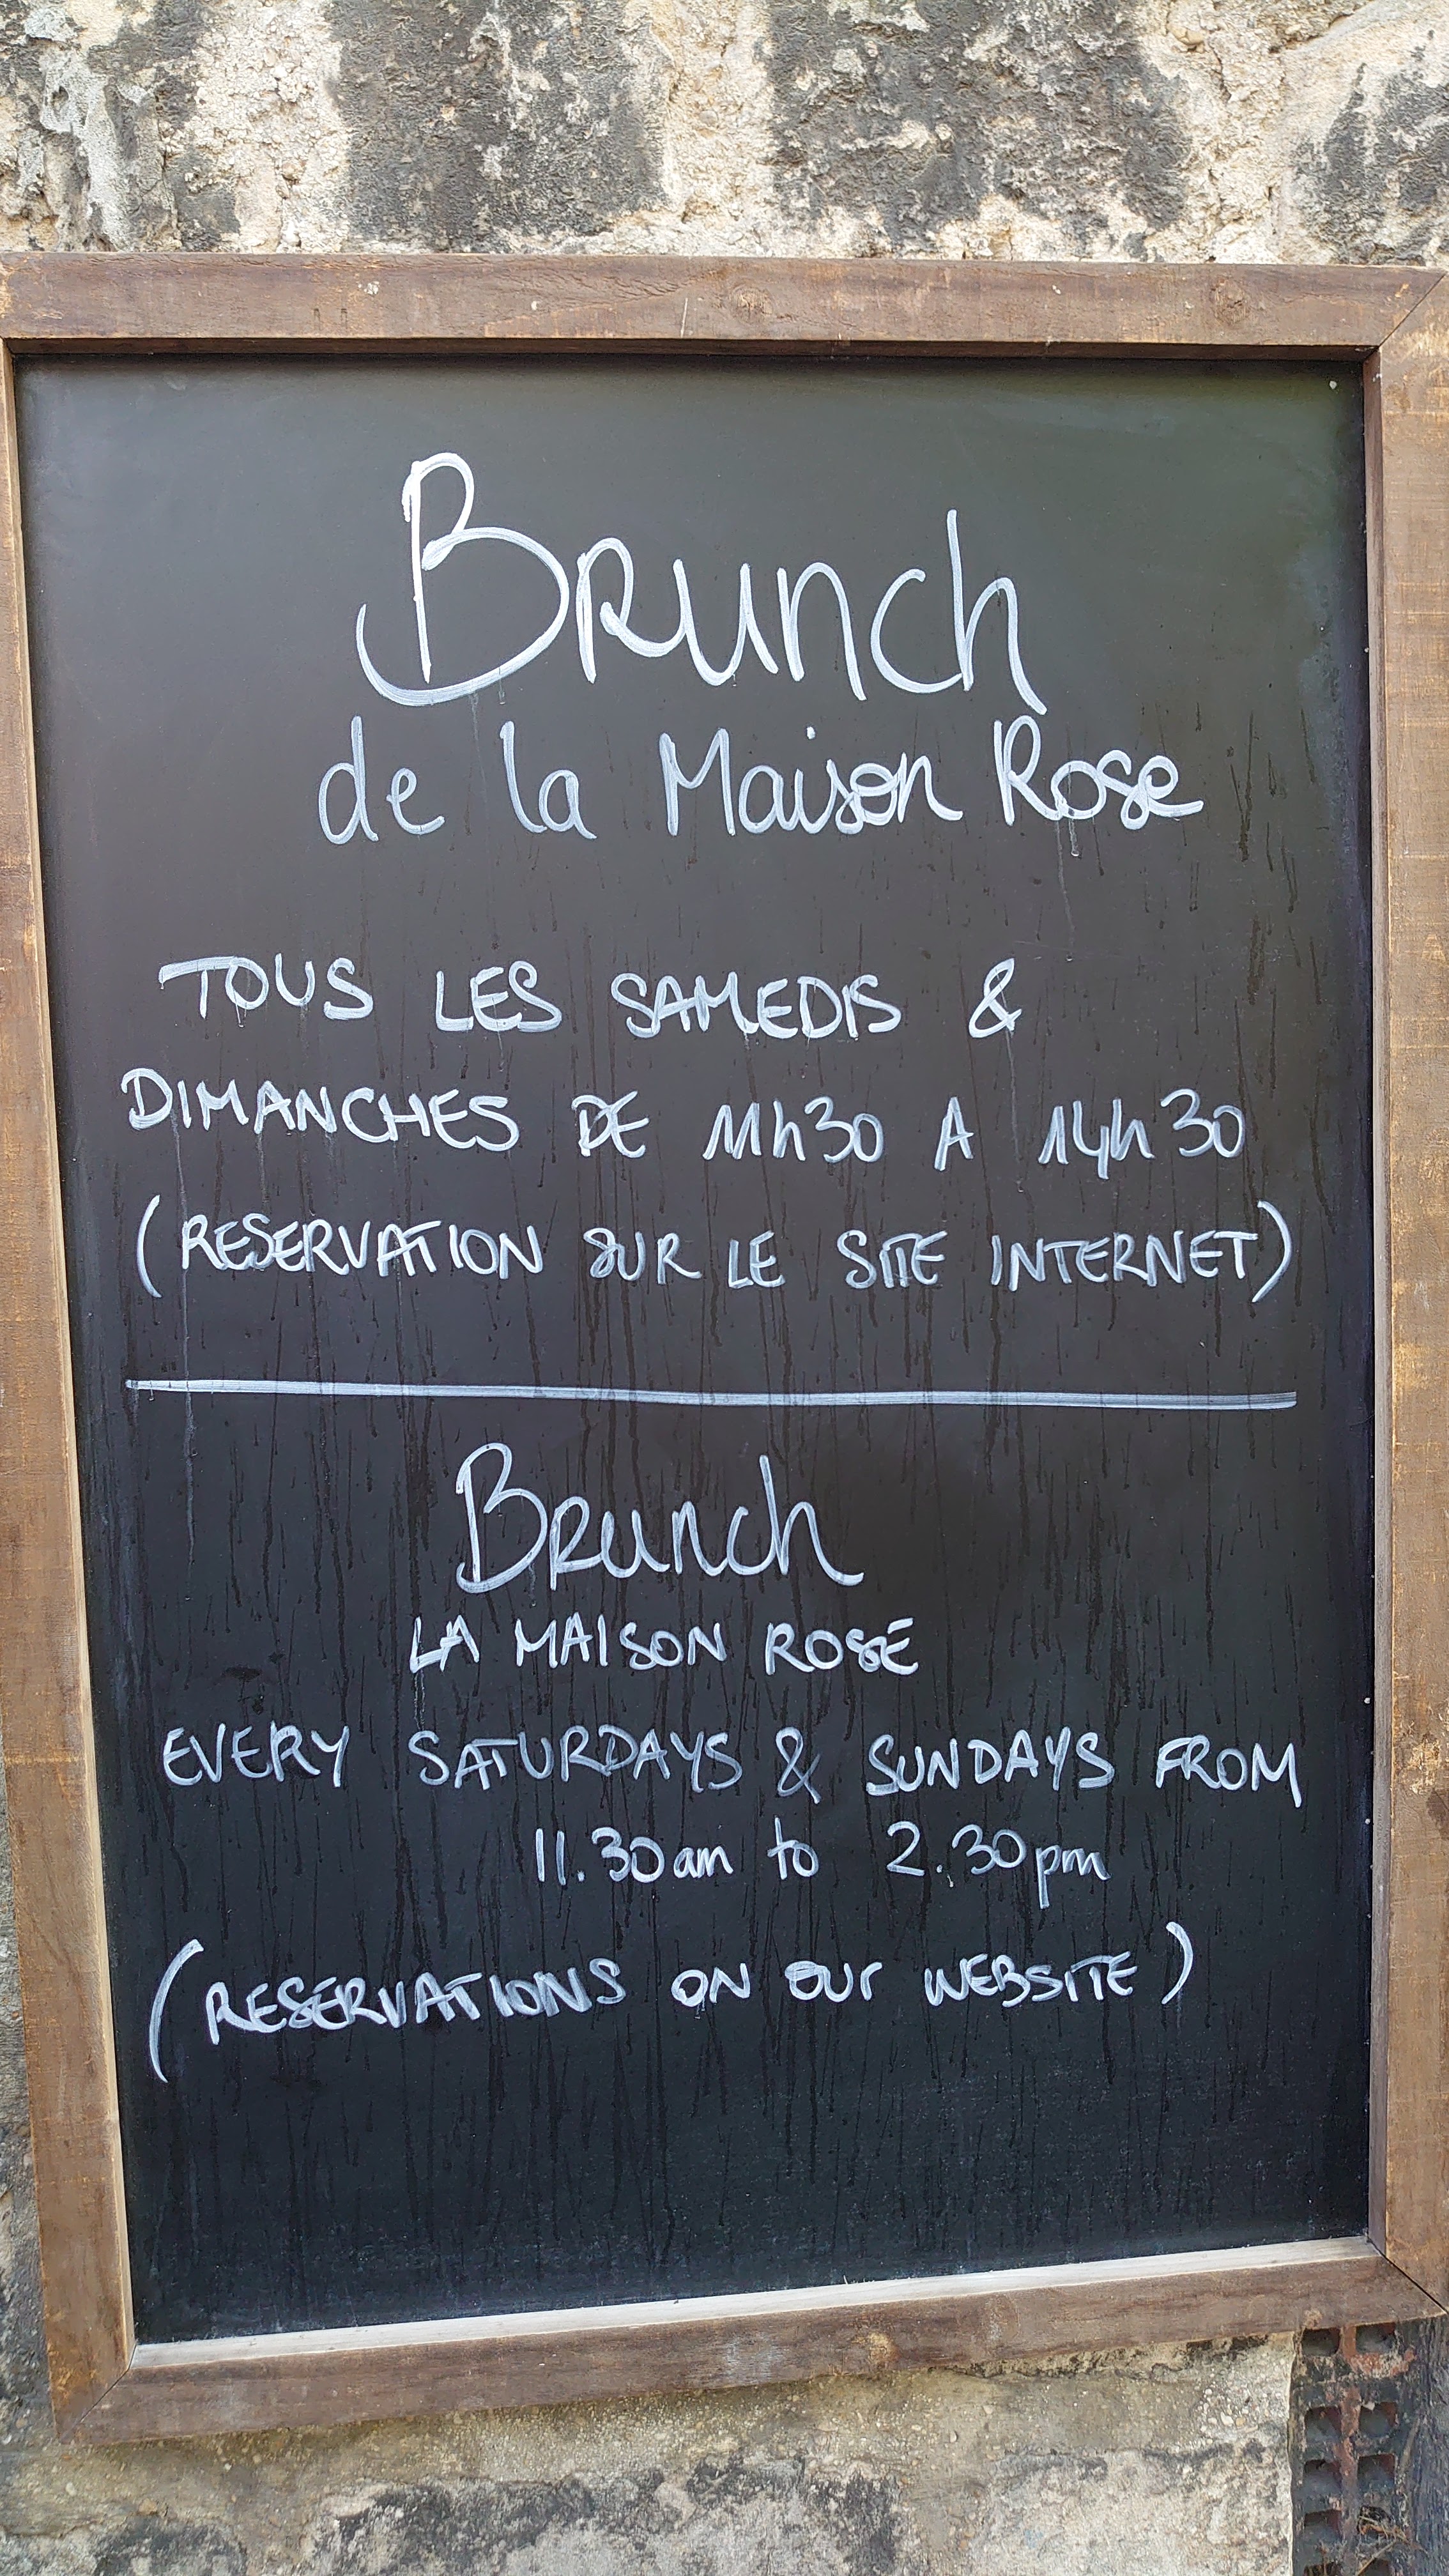 Brunch
de la Maison Rose
TOUS LES SAMEDIS &
DIMANCHES DE 11h30 A 14h30
(RESERVATION SUR LE SITE INTERNET)
Brunch
LA MAISON ROSE
EVERY SATURDAYS & SUNDAYS FROM
11.30am to 2.30pm
(RESERVATIONS ON OUr WEBSITE)